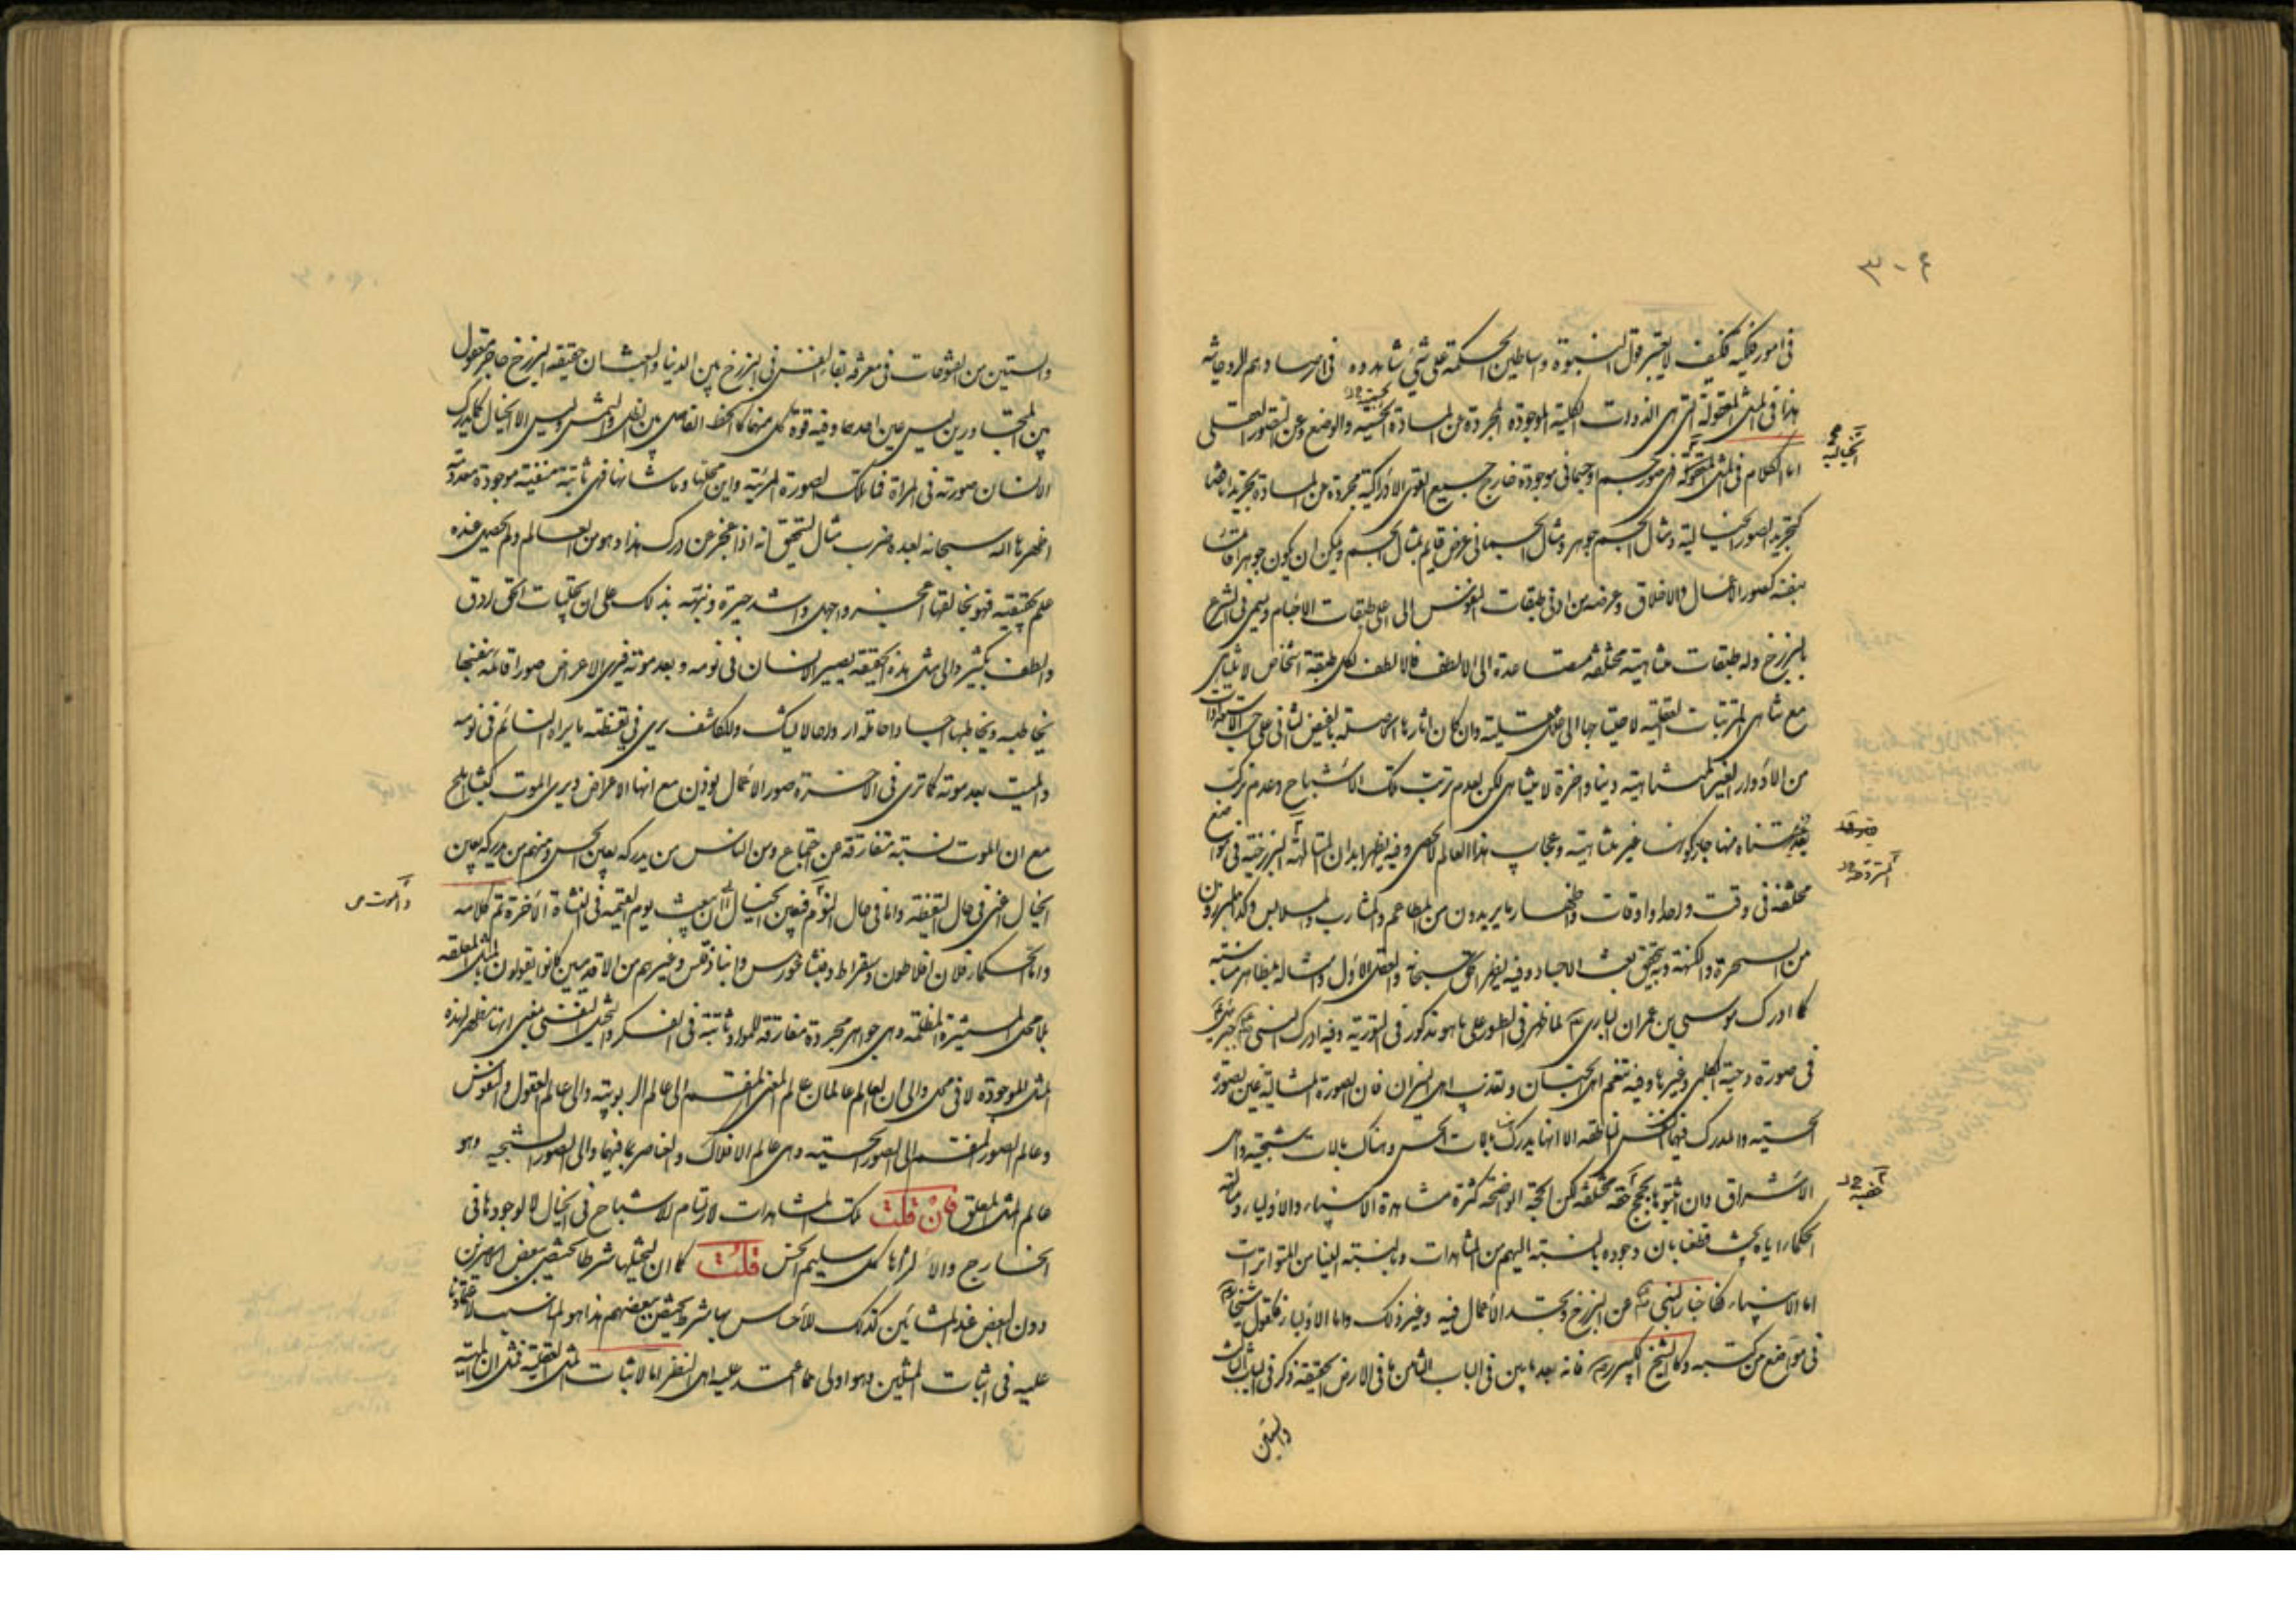 ٣٠٤
في امور فلكية فكيف لا يعتبر قول النبوة واساطين الحكمة على شيء شاهدوه في ارصادهم الروحانية
هذا في المثل المعقولة التي هي الذوات الكلية الموجودة المجردة عن المادة الحسية والوضع وعن التصور العقلي
اما الكلام في المثل المعلقة فهي صور جسم او جسماني موجودة خارج جميع القوى الادراكية مجردة عن المادة تجريدا ناقصا
الخيالية
كتجريد الصور الخيالية ومثال الجسم جوهر ومثال الجسماني عرض قايم بمثال الجسم ويمكن ان يكون جوهرا قائما
بنفسه كصور الاعمال والاخلاق وعرضه من ادنى طبقات النفوس الى اعلى طبقات الاجسام ويسمى في الشرع
بالبرزخ وله طبقات متناهية مختلفة متصاعدة الى الالطف فالالطف لكل طبقة اشخاص لا تتناهى
مع تناهي المترتبات العقلية لاحتياجها الى علل عقلية وان كان اثارها الحاصلة بالفيض الثاني على حسب الاستعدادات
من الادوار الغير المتناهية دنيا واخرة لا يتناهى لكن لعدم ترتب تلك الاشباح وعدم تركب
بعد متناه منها جاز كونها غير متناهية وعجايب هذا العالم لا تحصى وفيه يظهر ابدان المتالهة البرزخية في مواضع
مختلفة في وقت واحد او اوقات واظهار ما يريدون من المطاعم والمشارب والملابس وكذا المبرزون
من السحرة والكهنة وبه يتحقق بعث الاجساد وفيه يظهر الحق سبحانه والعقل الاول وامثاله بمظاهر مناسبة
كما ادرك موسى بن عمران الباري تع لما ظهر في الطور على ما هو مذكور في التورية وفيه ادرك النبي جبرئيل
في صورة دحية الكلبي وغيرها وفيه تنعم اهل الجنان وتعذب اهل النيران فان الصورة المثالية عين الصورة
الحسية والمدرك فيهما النفس الناطقة الا انها يدرك هنا بالات الحس وهناك بالات شبحية واهل
الاشراق وان اثبتوها بحجج خفية مختلفة لكن الحجة الواضحة كثرة مشاهدة الانبياء والاولياء ومتالهة
خفية
الحكماء اياه بحيث قطعنا بان وجوده بالنسبة اليهم من المشاهدات وبالنسبة الينا من المتواترات
اما الانبياء فكاخبار النبي عن البرزخ وتجسد الاعمال فيه وغير ذلك واما الاولياء فكقول شيخنا
في مواضع من كتبه وكالشيخ الكبير فانه بعد ما بين في الباب الثامن ما في الارض الحقيقة ذكر في الباب الثالث
والستين
والستين من الفتوحات في معرفة بقاء النفس في البرزخ بين الدنيا والبعث ان حقيقة البرزخ حاجز معقول
بين المتجاورين ليس عين احدهما وفيه قوة كل منهما كالخط الفاصل بين الظل والشمس وليس الا الخيال كما يدرك
الانسان صورته في المراة فما تلك الصورة المرئية واين محلها وما شانها فهي ثابتة منفية موجودة معدومة
اظهرها الله سبحانه لعبده ضرب مثال ليتحقق انه اذا عجز عن درك هذا وهو من العالم ولم يحصل عنده
علم بحقيقته فهو بخالقها اعجز واجهل واشد حيرة ونبهه بذلك على ان تجليات الحق ارق
والطف بكثير والى مثل هذه الحقيقة يصير الانسان في نومه وبعد موته فيرى الاعراض صورا قائمة بنفسها
يخاطبه ويخاطبها اجسادا حاملة ارواحا لا يشك والمكاشف يرى في يقظته ما يراه النائم في نومه
والميت بعد موته كما ترى في الاخرة صور الاعمال يوزن مع انها الاعراض ويرى الموت كبشا املح
مع ان الموت نسبة مفارقة عن اجتماع ومن الناس من يدركه بعين الحس ومنهم من يدركه بعين
الخيال اعني في حال اليقظة واما في حال النوم فبعين الخيال الى ان يبعث يوم القيمة في النشاة الاخرة تم كلامه
والموت
واما الحكماء فلان افلاطون وسقراط وفيثاغورس وانباذقلس وغيرهم من الاقدمين كانوا يقولون بالمثل المعلقة
بلا محل المستنيرة والمظلمة وهي جواهر مجردة مفارقة للمواد ثابتة في الفكر والتخيل النفسي بمعنى انهما مظهر لهذه
المثل الموجودة لا في محل والى ان العالم عالمان عالم المعنى المنقسم الى عالم الربوبية والى عالم العقول والنفوس
وعالم الصور المنقسم الى الصور الحسية وهي عالم الافلاك والعناصر بما فيهما والى الصور الشبحية وهو
عالم المثل المعلق فان قلت تلك المشاهدات لارتسام الاشباح في الخيال لا لوجودها في
الخارج والا لراها كل سليم الحس قلت كما ان لتخيلها شرطا يختص ببعض المبصرين
دون البعض عند المشائين كذلك للاحساس بها شرط يختص ببعضهم هذا هو المناسب لاعتمادنا
عليه في اثبات المثلين وهو اولى مما اعتمد عليه اهل النظر اما لاثبات المثل العقلية فمثل ان المهية